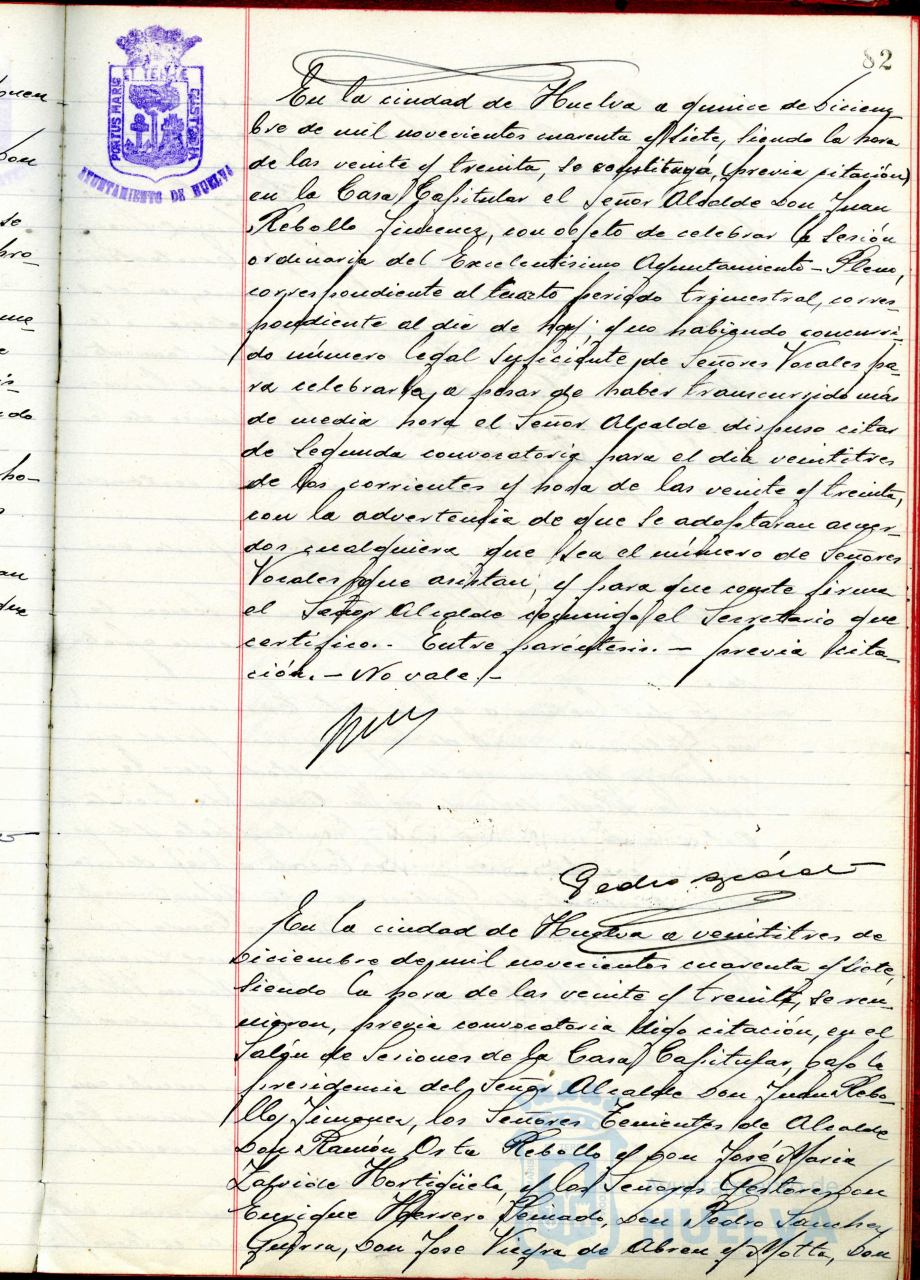 82
PORTUS MARIS ET TERRE CUSTODIA
AYUNTAMIENTO DE HUELVA
En la ciudad de Huelva a quince de Diciem
bre de mil novecientos cuarenta y siete, siendo la hora
de las veinte y treinta, se constituyó, (previa citación)
en la Casa Capitular el Señor Alcalde Don Juan
Rebollo Jimenez, con objeto de celebrar la sesión
ordinaria del Excelentisimo Ayuntamiento-Pleno,
correspondiente al cuarto periodo trimestral, corres-
pondiente al dia de hoy; y no habiendo concurri-
do número legal suficiente de Señores Vocales pa-
ra celebrarla, a pesar de haber transcurrido más
de media hora el Señor Alcalde dispuso citar
de segunda convocatoria para el dia veintitres
de los corrientes y hora de las veinte y treinta,
con la advertencia de que se adoptaran acuer-
dos cualquiera que sea el número de Señores
Vocales que asistan; y para que conste firma
el Señor Alcalde conmigo el Secretario que
certifico.- Entre paréntesis.- previa cita-
ción.- No vale.-
Pedro
En la ciudad de Huelva a veintitres de
Diciembre de mil novecientos cuarenta y siete,
siendo la hora de las veinte y treinta, se reu-
nieron, previa convocatoria digo citación, en el
Salón de Sesiones de la Casa Capitular, bajo la
presidencia del Señor Alcalde Don Juan Rebo-
llo Jimenez, los Señores Tenientes de Alcalde
Don Ramón Orta Rebollo y Don José Maria
Hortigüela, y los Señores Gestores Don
Enrique Herrero Don Pedro Sanchez
Guerra, Don José de Abreu y Motta, Don
Ayuntamiento de
HUELVA